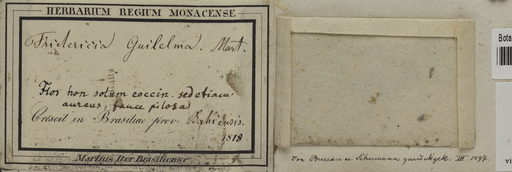 HERBARIUM REGIUM MONACENSE.
Fridericia Guilelma. Mart.
Flos non solum coccin. sed etiam
aureus, fauce pilosa
Crescit in Brasiliae prov. Bahiensis.
1818
Martius Iter Brasiliense.
von Bureau u. Schumann zurückgek. III 1897.
Bota
vi